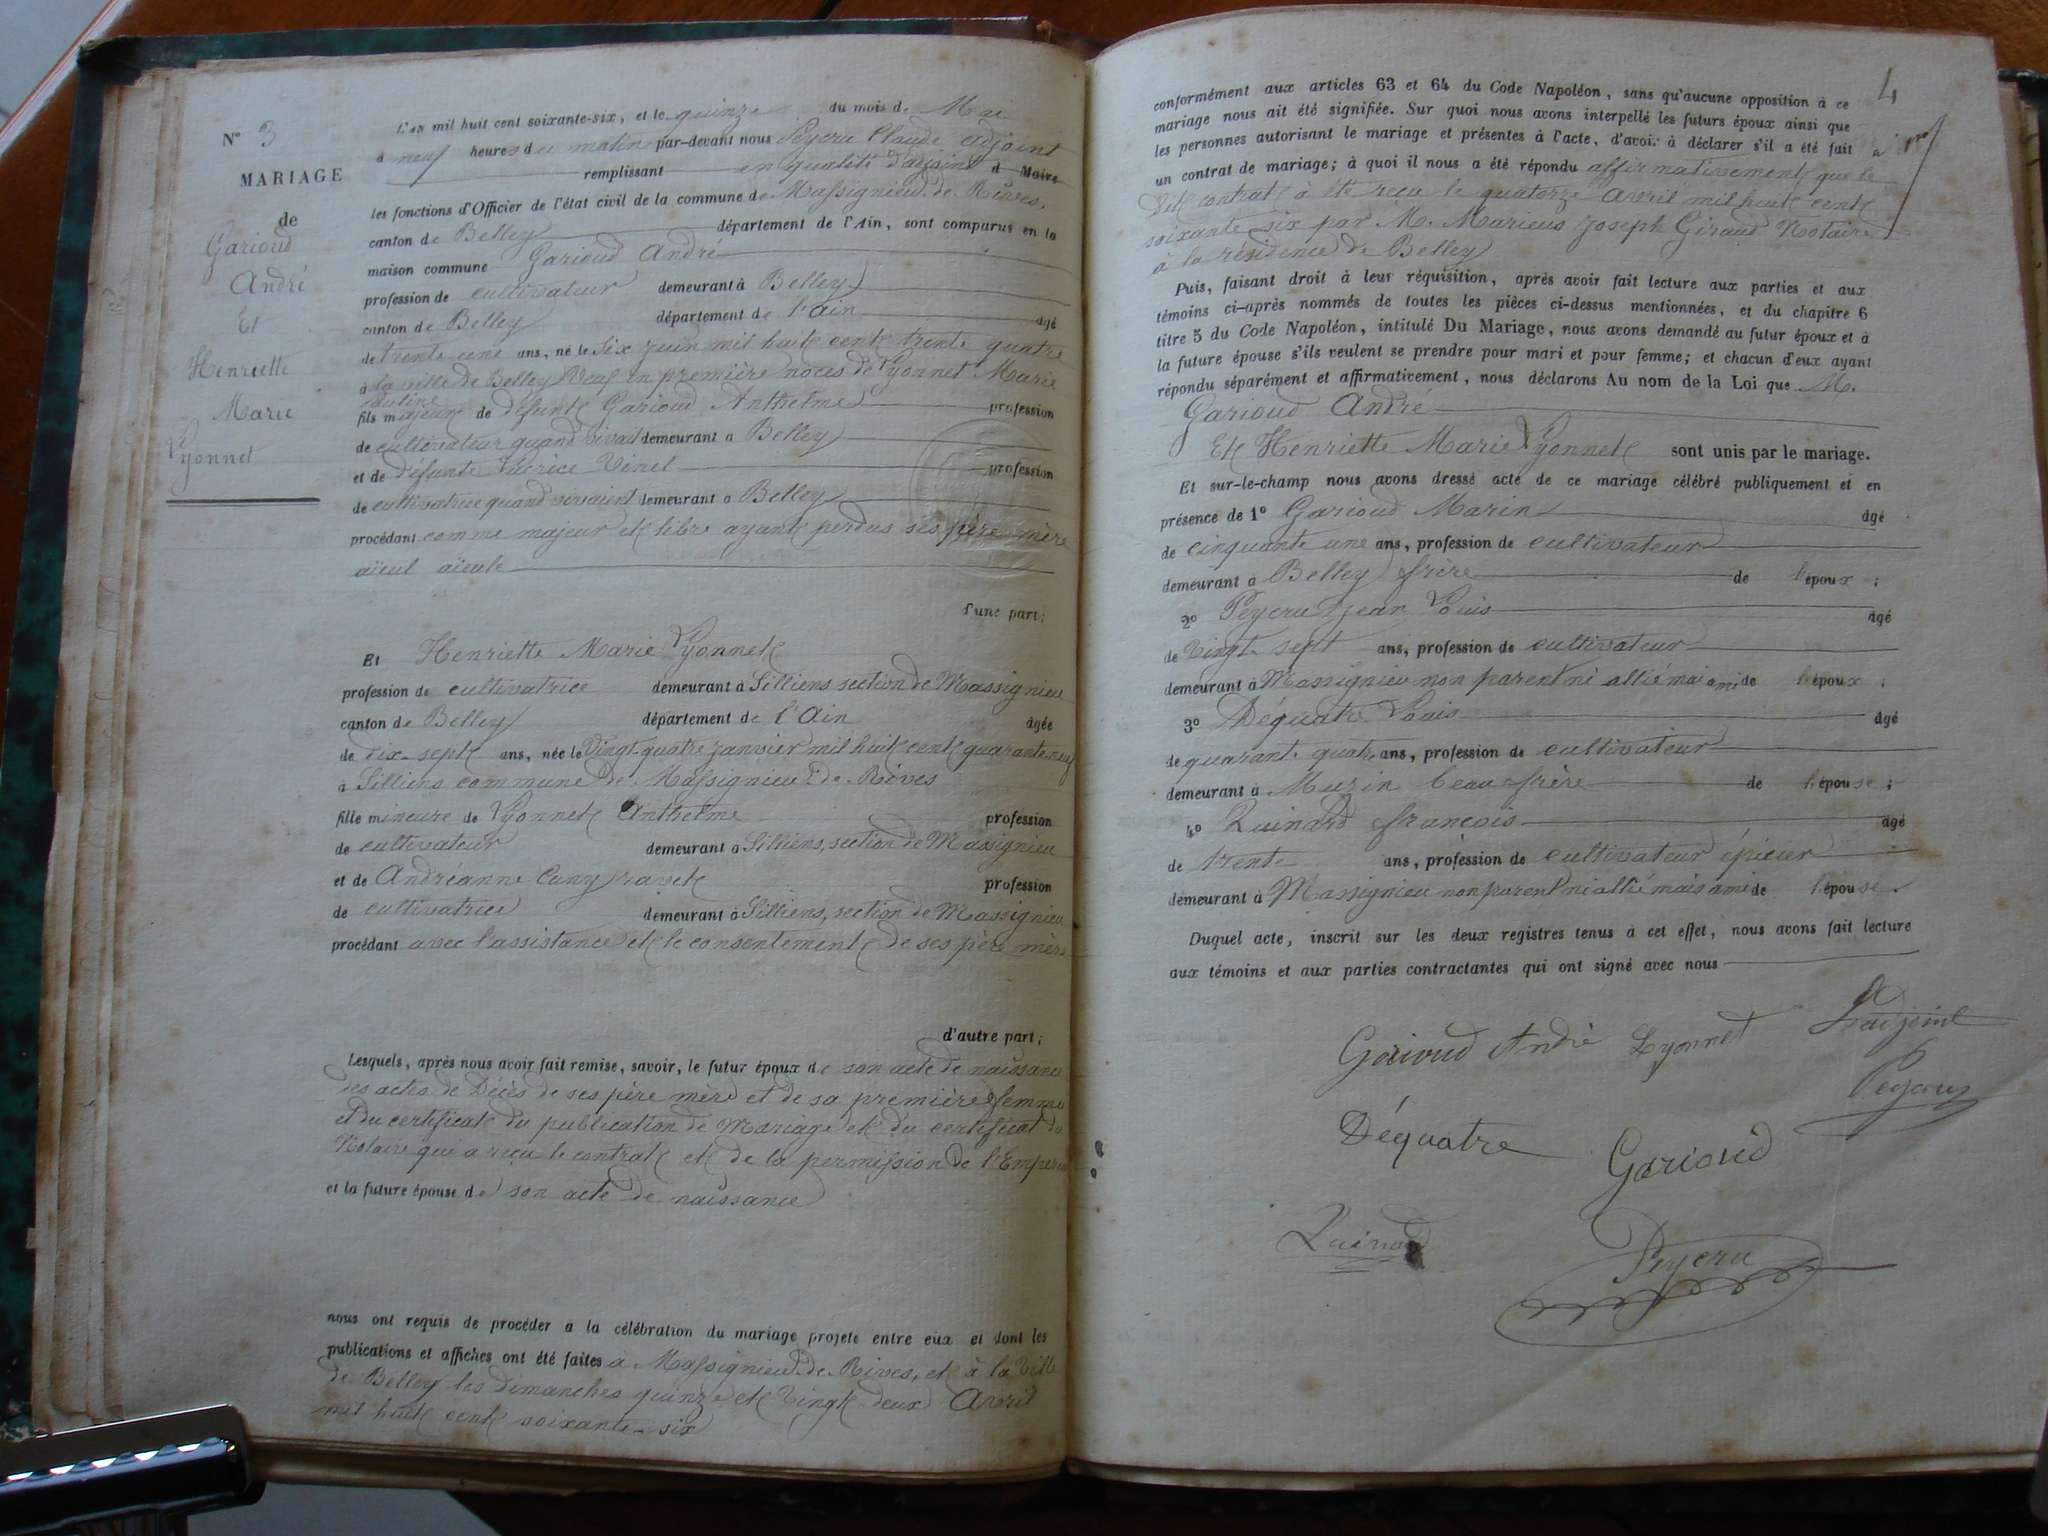 N° 3
MARIAGE
de
Garioud
André
Et
Henriette
Marie
Lyonnet
L'an mil huit cent soixante-six, et le quinze du mois de Mai
à neuf heures du matin par-devant nous Peyeru Claude adjoint
remplissant en qualité d'adjoint d Maire
les fonctions d'Officier de l'état civil de la commune de Massignieu de Rives,
canton de Belley département de l'Ain, sont comparus en la
maison commune Garioud André
profession de cultivateur demeurant à Belley
canton de Belley département de l'Ain âgé
de trente une ans, né le Six Juin mil huit cent trente quatre
à la ville de Belley Veuf en première noces de Lyonnet Marie
fils majeur de défunt Garioud Anthelme profession
de cultivateur quand vivait demeurant à Belley
et de défunte Vinet profession
de cultivatrice quand vivaient demeurant à Belley
procédant comme majeur et libre ayant perdus ses père mère
aïeul aïeule
d'une part;
Et Henriette Marie Lyonnet
profession de cultivatrice demeurant à Silliens section de Massignieu
canton de Belley département de l'Ain âgée
de dix-sept ans, née le Vingt-quatre janvier mil huit cent quarante-neuf
à Silliens commune de Massignieu de Rives
fille mineure de Lyonnet Anthelme profession
de cultivateur demeurant à Silliens, section de Massignieu
et de Andréanne Cuny profession
de cultivatrice demeurant à Silliens, section de Massignieu
procédant avec l'assistance et le consentement de ses père mère
d'autre part;
Lesquels, après nous avoir fait remise, savoir, le futur époux de son acte de naissance
ses actes de Décès de ses père mère et de sa première femme
et du certificat du publication de Mariage et du certificat du
Notaire qui a reçu le contrat et de la permission de l'Empereur
et la future épouse de son acte de naissance
nous ont requis de procéder à la célébration du mariage projeté entre eux et dont les
publications et affiches ont été faites à Massignieu de Rives, et à la Ville
de Belley les dimanches quinze et Vingt-deux Avril
mil huit cent soixante-six
4
conformément aux articles 63 et 64 du Code Napoléon, sans qu'aucune opposition à ce
mariage nous ait été signifiée. Sur quoi nous avons interpellé les futurs époux ainsi que
les personnes autorisant le mariage et présentes à l'acte, d'avoir à déclarer s'il a été fait
un contrat de mariage; à quoi il nous a été répondu affirmativement que le
dit contrat à été reçu le quatorze Avril mil huit cent
soixante six par M. Marieus Joseph Giraud Notaire
à la résidence de Belley
Puis, faisant droit à leur réquisition, après avoir fait lecture aux parties et aux
témoins ci-après nommés de toutes les pièces ci-dessus mentionnées, et du chapitre 6
titre 5 du Code Napoléon, intitulé Du Mariage, nous avons demandé au futur époux et à
la future épouse s'ils veulent se prendre pour mari et pour femme; et chacun d'eux ayant
répondu séparément et affirmativement, nous déclarons Au nom de la Loi que M.
Garioud André
Et Henriette Marie Lyonnet sont unis par le mariage.
Et sur-le-champ nous avons dressé acte de ce mariage célébré publiquement et en
présence de 1° Garioud Marin âgé
de cinquante une ans, profession de cultivateur
demeurant à Belley frère de l'époux;
2° Peyeru Jean Louis âgé
de Vingt sept ans, profession de cultivateur
demeurant à Massignieu non parent ni allié mai ami de l'époux;
3° Déquatre Louis âgé
de quarant quatr ans, profession de cultivateur
demeurant à Murin beau-frère de l'épouse;
4° Quinard françois âgé
de trente ans, profession de cultivateur épicier
demeurant à Massignieu non parent ni allié mais ami de l'épouse.
Duquel acte, inscrit sur les deux registres tenus à cet effet, nous avons fait lecture
aux témoins et aux parties contractantes qui ont signé avec nous
Garioud André Lyonnet L'adjoint
Peyeru
Déquatre Garioud
Quinard Peyeru